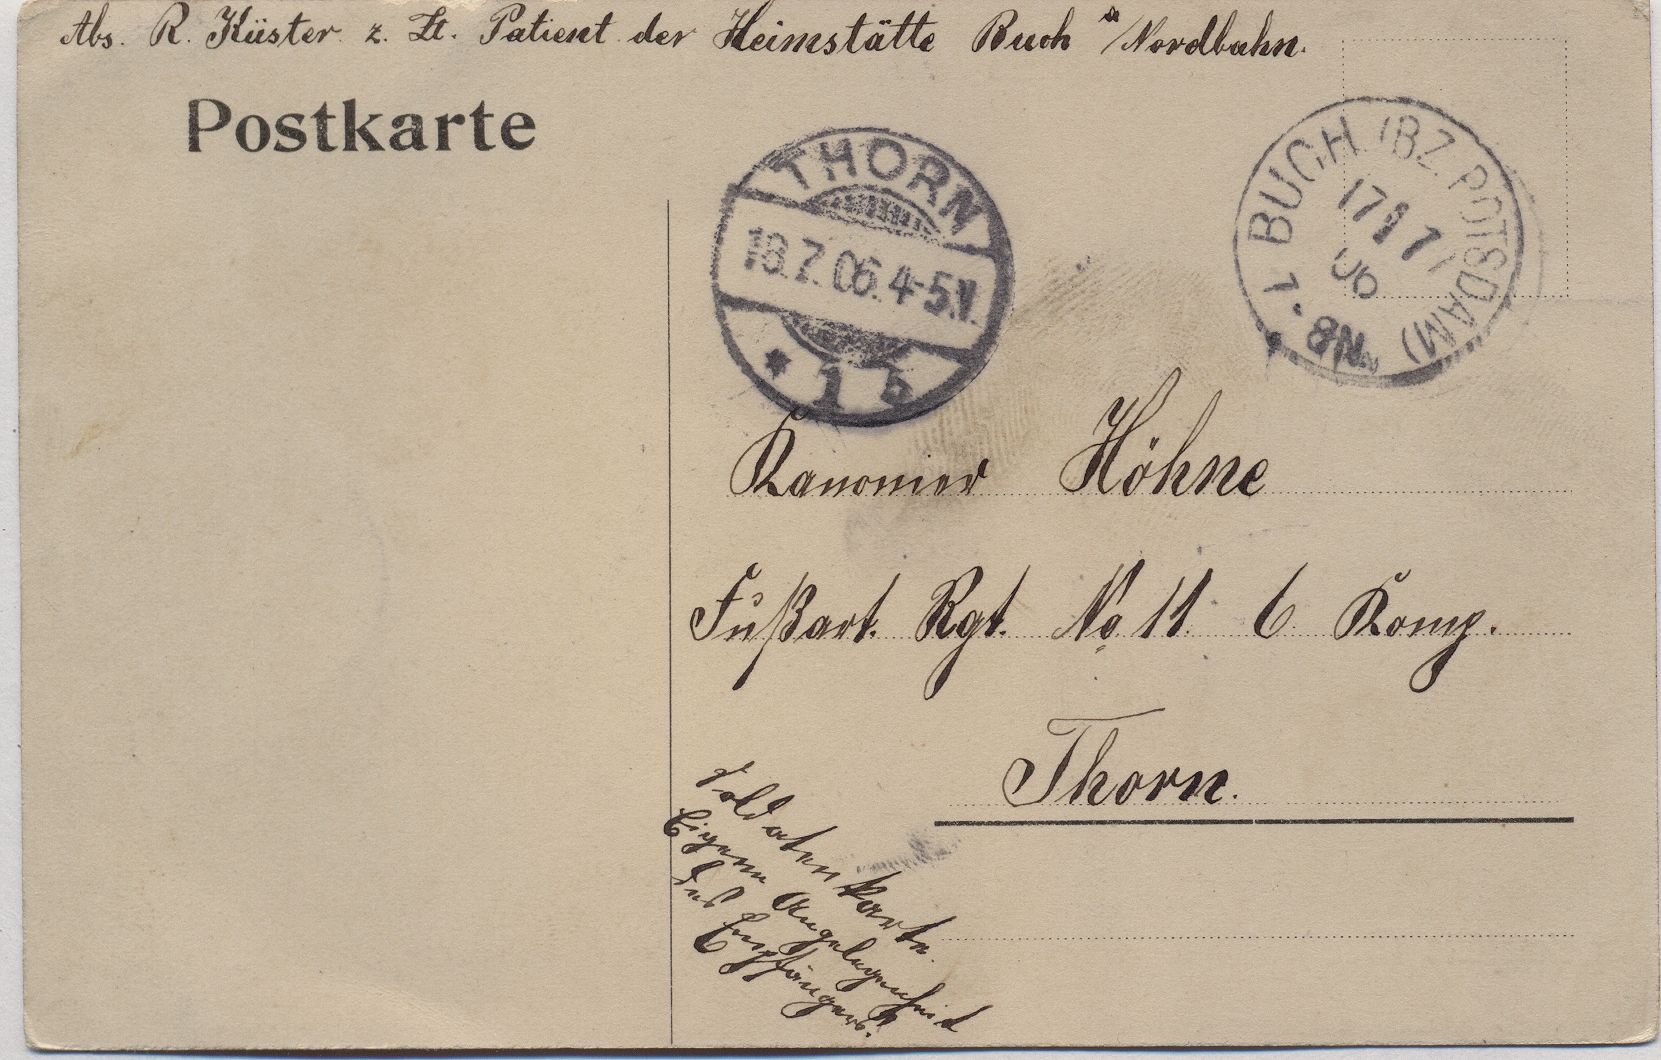 Abs. R. Küster z. Zt. Patient der Heimstätte Buch a/Nordbahn.
Postkarte
THORN
18.7.06.4-5.V.
* 1 b
BUCH (BZ. POTSDAM)
17 7
06
7-8N.
Kanonier Höhne
Fußart. Rgt. No 11. 6 Komp.
Thorn.
Soldatenkarte.
Eigene Angelegenheit
des Empfängers.